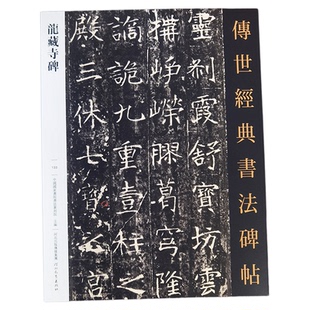 傳世經典書法碑帖
靈刹霞舒寶坊雲
構崢嶸膠葛穹隆
譎詭九重壹柱之
殿三休七寶之宮
龍藏寺碑